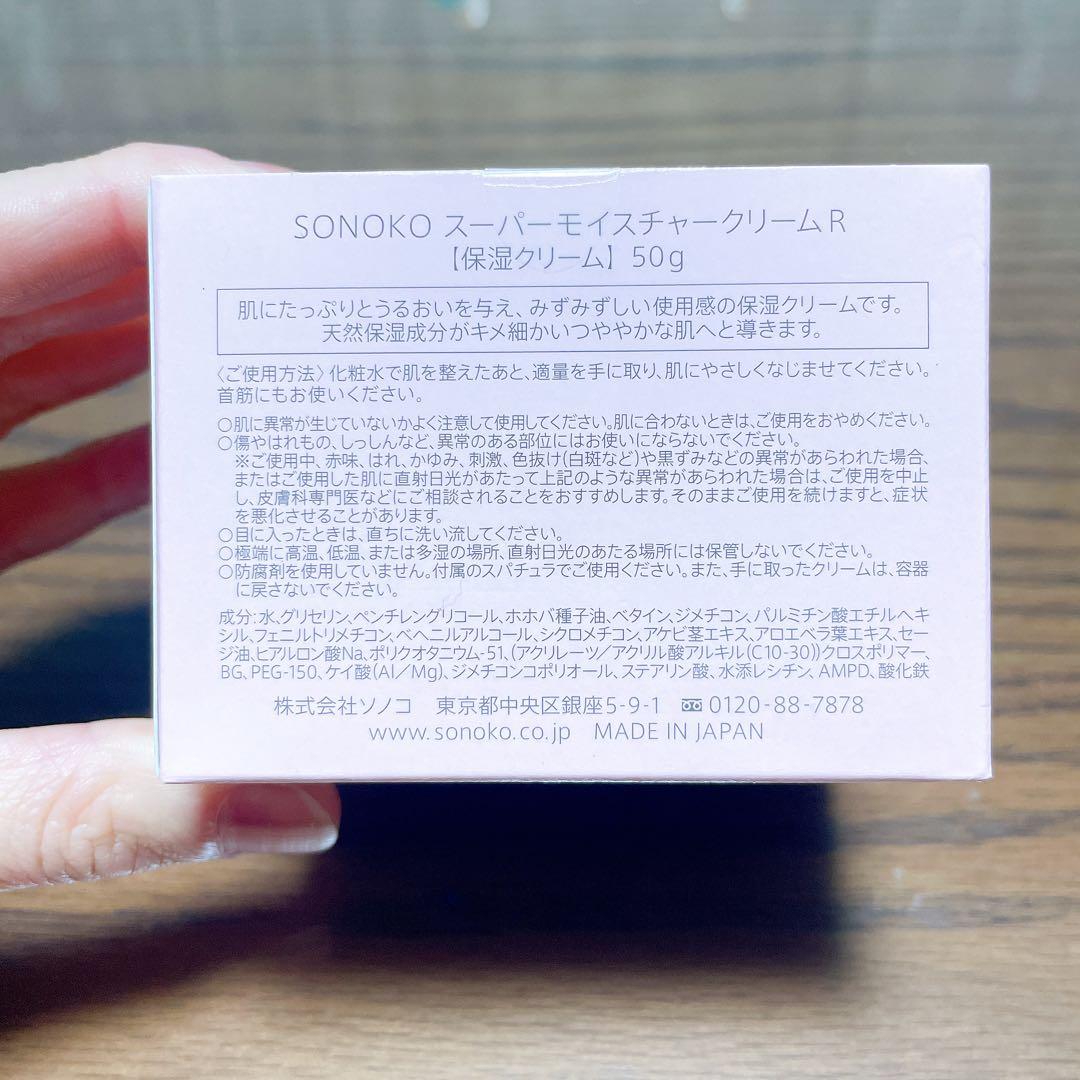 SONOKO スーパーモイスチャークリームR
【保湿クリーム】 50g
肌にたっぷりとうるおいを与え、みずみずしい使用感の保湿クリームです。
天然保湿成分がキメ細かいつややかな肌へと導きます。
〈ご使用方法〉化粧水で肌を整えたあと、適量を手に取り、肌にやさしくなじませてください。
首筋にもお使いください。
○肌に異常が生じていないかよく注意して使用してください。肌に合わないときは、ご使用をおやめください。
○傷やはれもの、しっしんなど、異常のある部位にはお使いにならないでください。
※ご使用中、赤味、はれ、かゆみ、刺激、色抜け(白斑など)や黒ずみなどの異常があらわれた場合、
またはご使用した肌に直射日光があたって上記のような異常があらわれた場合は、ご使用を中止
し、皮膚科専門医などにご相談されることをおすすめします。そのままご使用を続けますと、症状
を悪化させることがあります。
○目に入ったときは、直ちに洗い流してください。
○極端に高温、低温、または多湿の場所、直射日光のあたる場所には保管しないでください。
○防腐剤を使用していません。付属のスパチュラでご使用ください。また、手に取ったクリームは、容器
に戻さないでください。
成分:水、グリセリン、ペンチレングリコール、ホホバ種子油、ベタイン、ジメチコン、パルミチン酸エチルヘキ
シル、フェニルトリメチコン、ベヘニルアルコール、シクロメチコン、アケビ茎エキス、アロエベラ葉エキス、セー
ジ油、ヒアルロン酸Na、ポリクオタニウム-51、(アクリレーツ/アクリル酸アルキル(C10-30))クロスポリマー、
BG、PEG-150、ケイ酸(Al/Mg)、ジメチコンコポリオール、ステアリン酸、水添レシチン、AMPD、酸化鉄
株式会社ソノコ 東京都中央区銀座5-9-1 0120-88-7878
www.sonoko.co.jp MADE IN JAPAN